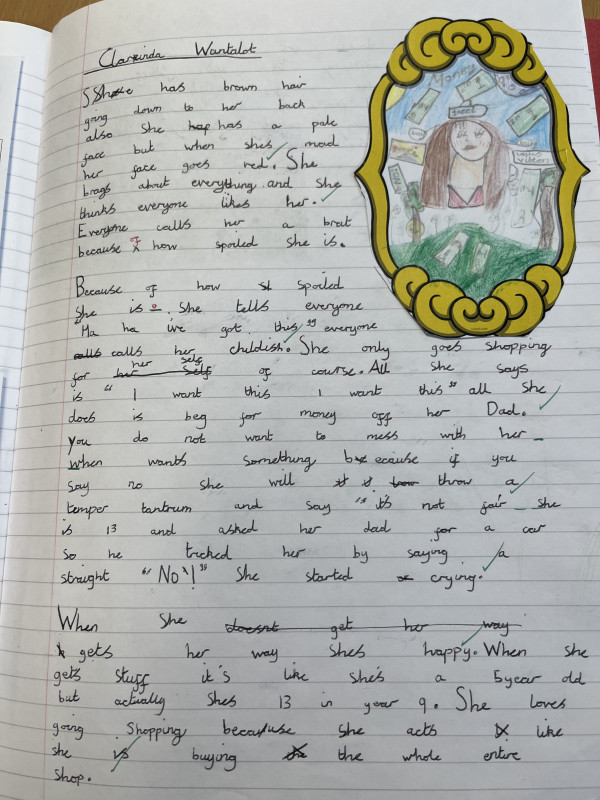 Clarinda Wantalot
She has brown hair
going down to her back
also She has a pale
face but when shes mad
her face goes red. She
brags about everything and she
thinks everyone likes her.
Everyone calls her a brat
because of how spoiled she is.
Because of how spoiled
She is. She tells everyone
"Ha ha ive got this" everyone
calls her childish. She only goes shopping
for her self of course. All she says
is "I want this I want this" all She
does is beg for money off her Dad.
You do not want to mess with her
when wants something because if you
say no she will throw a
temper tantrum and say "it's not fair she
is 13 and asked her dad for a car
so he tricked her by saying a
straight "No!" She started crying.
When She doesnt get her way
gets her way shes happy. When she
gets stuff it's like she's a 5year old
but actually shes 13 in year 9. She loves
going Shopping because she acts like
she is buying the whole entire
Shop.
Money